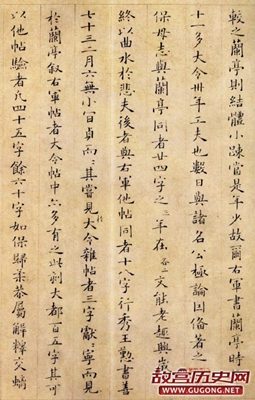 較之蘭亭則結體小踈當是年少故爾右軍書蘭亭時
十一多大令卅年工夫也數日與諸名公極論因備著之
保母志與蘭亭同者廿四字之二年在各二文能老趣興歲
終以曲水於悲夫後者與右軍他帖同者十八字行秀王懃書善
七十三二月六無小皆貞而二其嘗見大令雜帖者三字獻二寧而見
於蘭亭叙右軍帖者大令帖中亦多有之此剩大都百五字其可
以他帖驗者凡四十五字餘六十字如保歸柔恭屬解釋交螭
故宫历史网